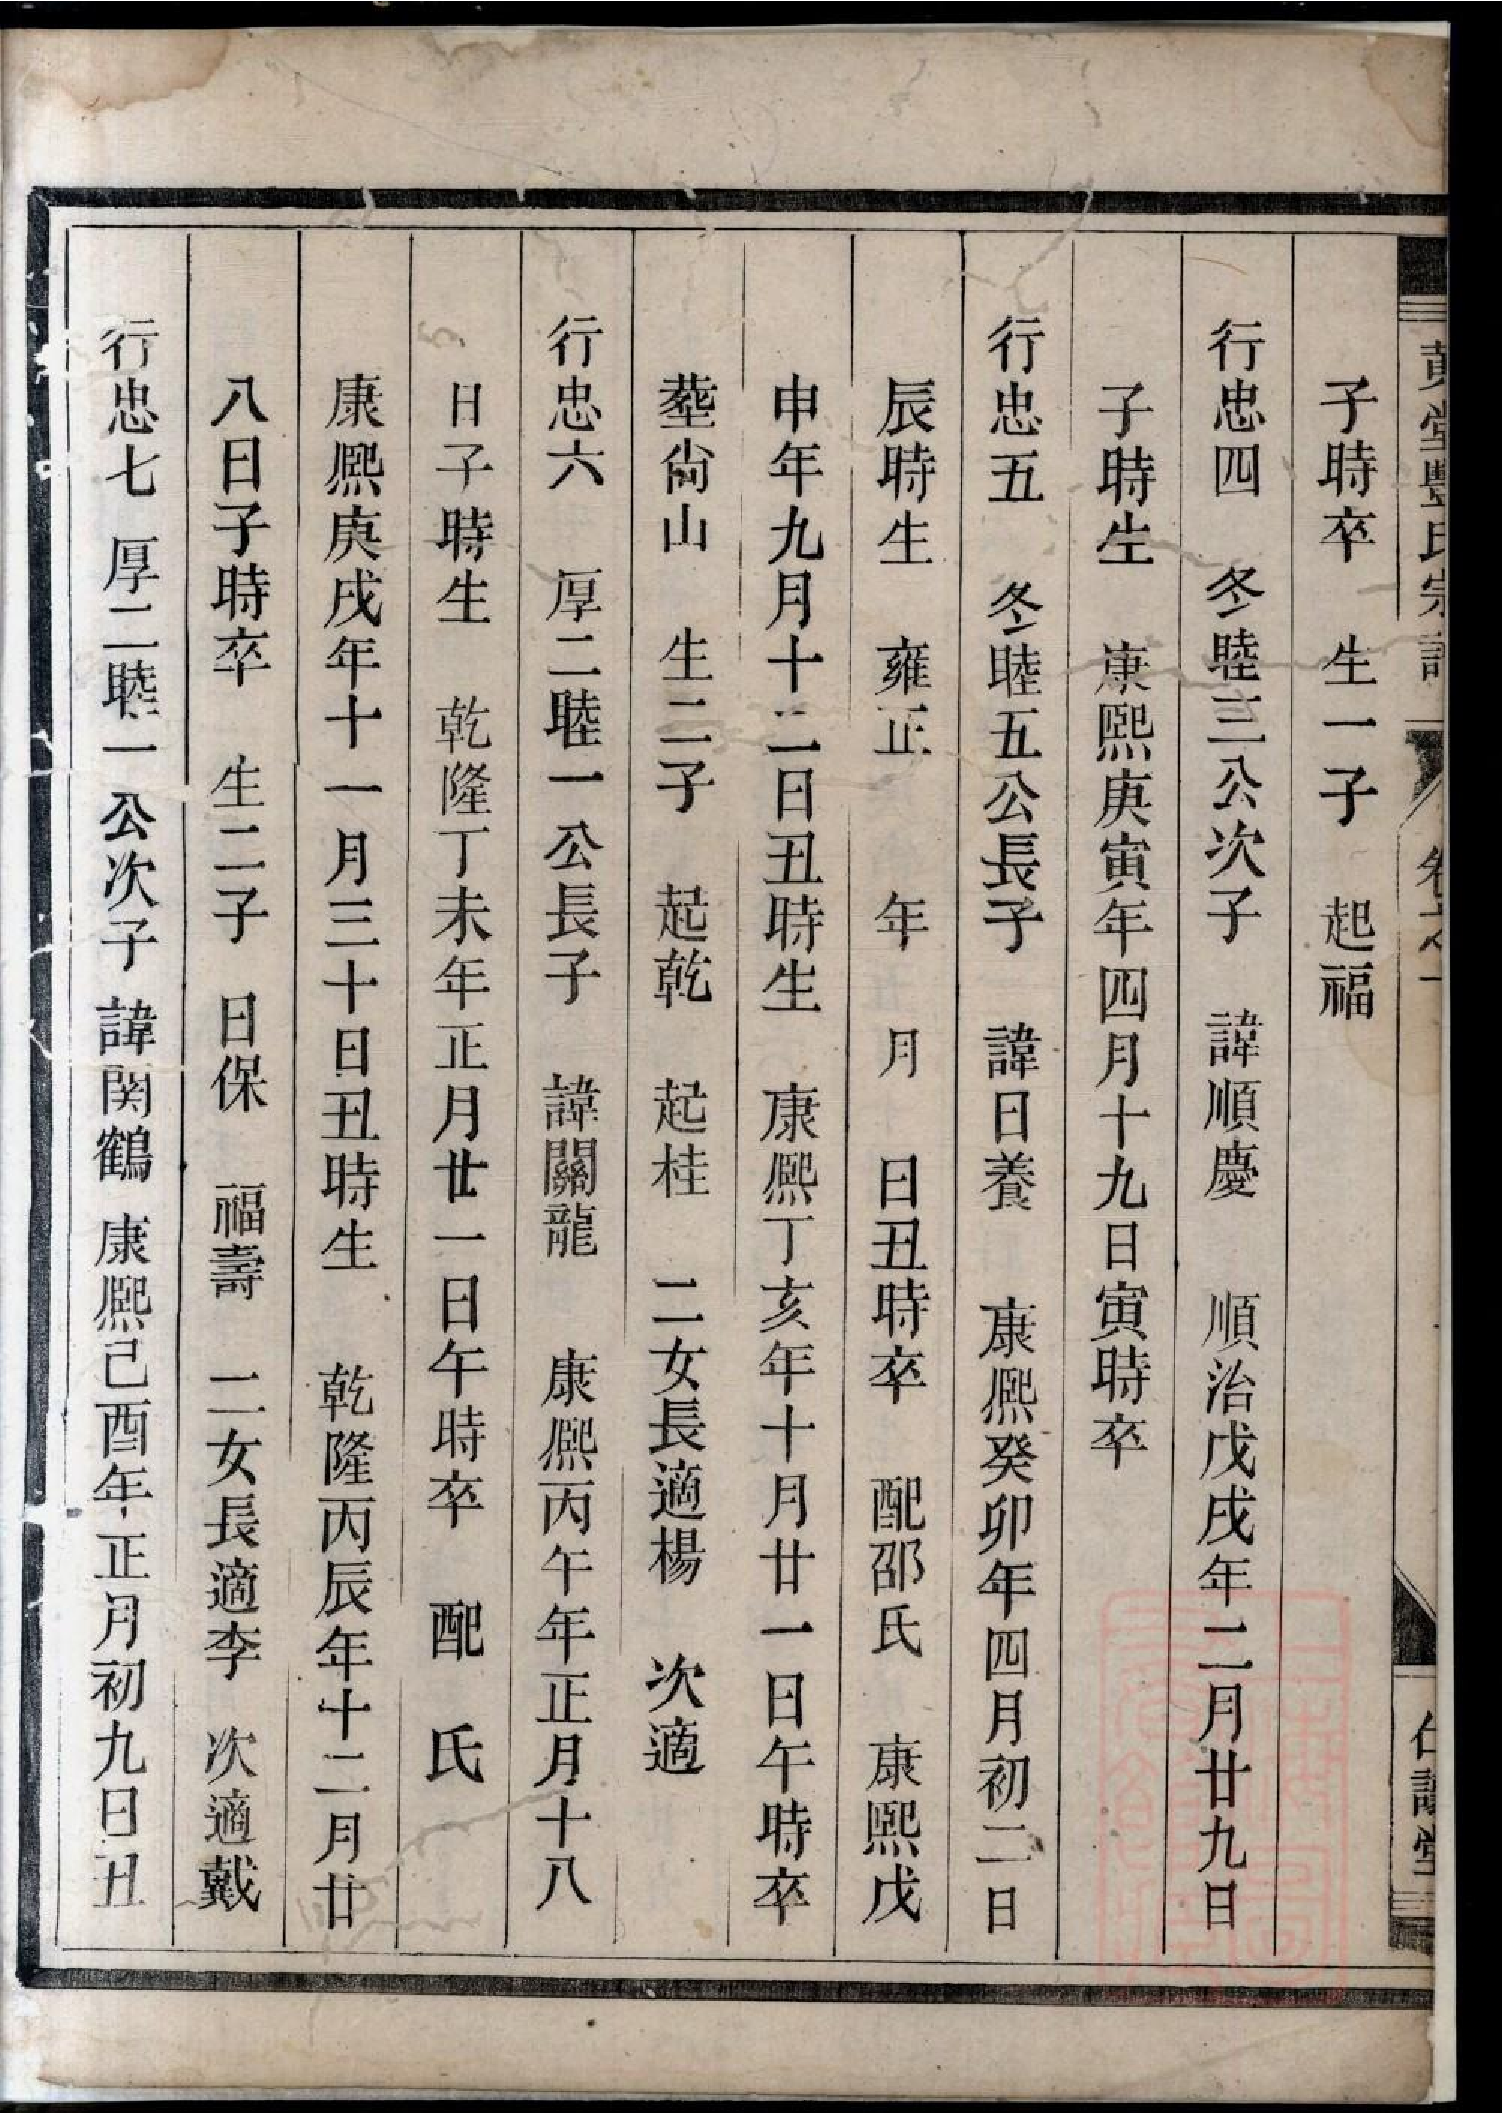 黄堂豐氏宗譜 卷之一
子時卒 生一子 起福
行忠四 冬睦三公次子 諱順慶 順治戊戌年二月廿九日
子時生 康熙庚寅年四月十九日寅時卒
行忠五 冬睦五公長子 諱日養 康熙癸卯年四月初二日
辰時生 雍正 年 月 日丑時卒 配邵氏 康熙戊
申年九月十二日丑時生 康熙丁亥年十月廿一日午時卒
塟尙山 生二子 起乾 起桂 二女長適楊 次適
行忠六 厚二睦一公長子 諱關龍 康熙丙午年正月十八
日子時生 乾隆丁未年正月廿一日午時卒 配 氏
康熙庚戌年十一月三十日丑時生 乾隆丙辰年十二月廿
八日子時卒 生二子 日保 福壽 二女長適李 次適戴
行忠七 厚二睦一公次子 諱関鶴 康熙己酉年正月初九日丑